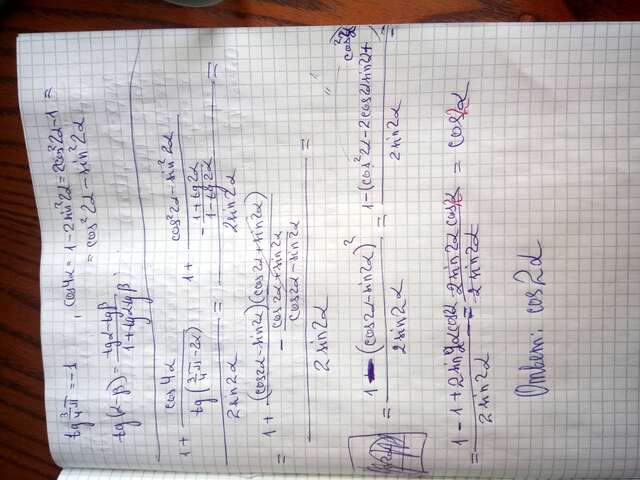 tg 3/4 π = -1 , cos4α = 1 - 2sin²2α = 2cos²2α - 1 =
= cos²2α - sin²2α
tg(α-β) = (tgα - tgβ)/(1 + tgα tgβ) ;
(1 + cos4α/tg(3/4 π - 2α))/(2sin2α) = (1 + (cos²2α - sin²2α)/(-(1 + tg2α)/(1 - tg2α)))/(2sin2α) =
= (1 + (cos2α - sin2α)(cos2α + sin2α)/(-(cos2α + sin2α)/(cos2α - sin2α)))/(2sin2α) =
= (1 - (cos2α - sin2α)²)/(2sin2α) = (1 - (cos²2α - 2cos2α sin2α + sin²2α))/(2sin2α) =
= (1 - 1 + 2sin2α cos2α)/(2sin2α) = (2sin2α cos2α)/(2sin2α) = cos2α
Ответ: cos2α